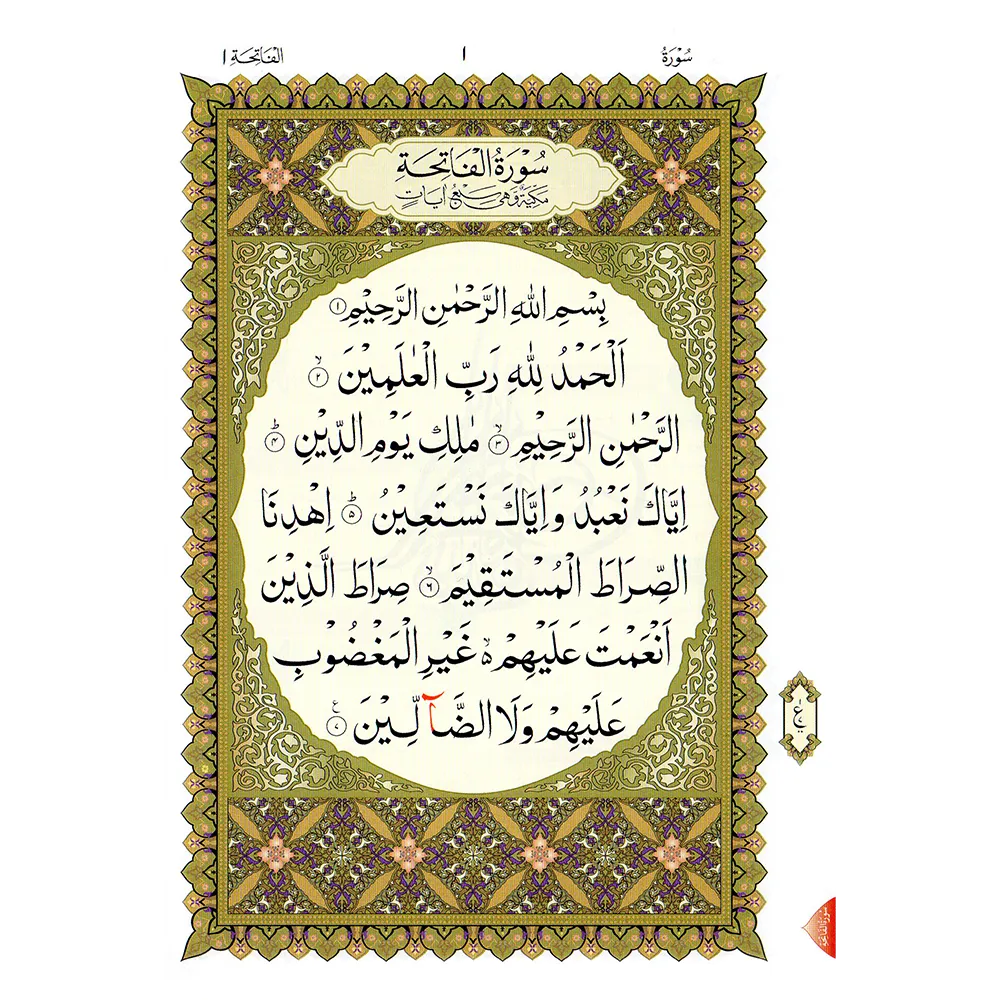 سُوْرَةُ ١ الْفَاتِحَةِ ١
سُوْرَةُ الْفَاتِحَةِ
مَكِّيَّةٌ وَّهِيَ سَبْعُ اٰيَاتٍ
بِسْمِ اللهِ الرَّحْمٰنِ الرَّحِيْمِ ١
اَلْحَمْدُ لِلّٰهِ رَبِّ الْعٰلَمِيْنَ ٢
الرَّحْمٰنِ الرَّحِيْمِ ٣ مٰلِكِ يَوْمِ الدِّيْنِ ٤
اِيَّاكَ نَعْبُدُ وَاِيَّاكَ نَسْتَعِيْنُ ٥ اِهْدِنَا
الصِّرَاطَ الْمُسْتَقِيْمَ ٦ صِرَاطَ الَّذِيْنَ
اَنْعَمْتَ عَلَيْهِمْ ە غَيْرِ الْمَغْضُوْبِ
عَلَيْهِمْ وَلَا الضَّآلِّيْنَ ٧
ع
سورة الفاتحة